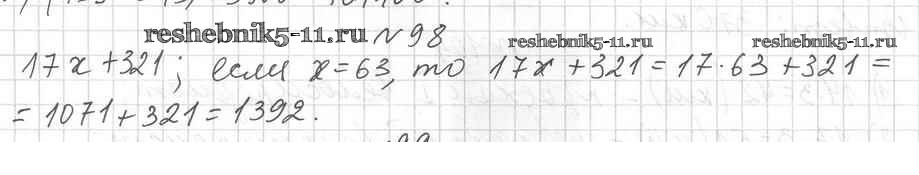 reshebnik5-11.ru № 98 reshebnik5-11.ru reshebnik5-11.ru
17x+321; если x=63, то 17x+321=17·63+321=
=1071+321=1392.